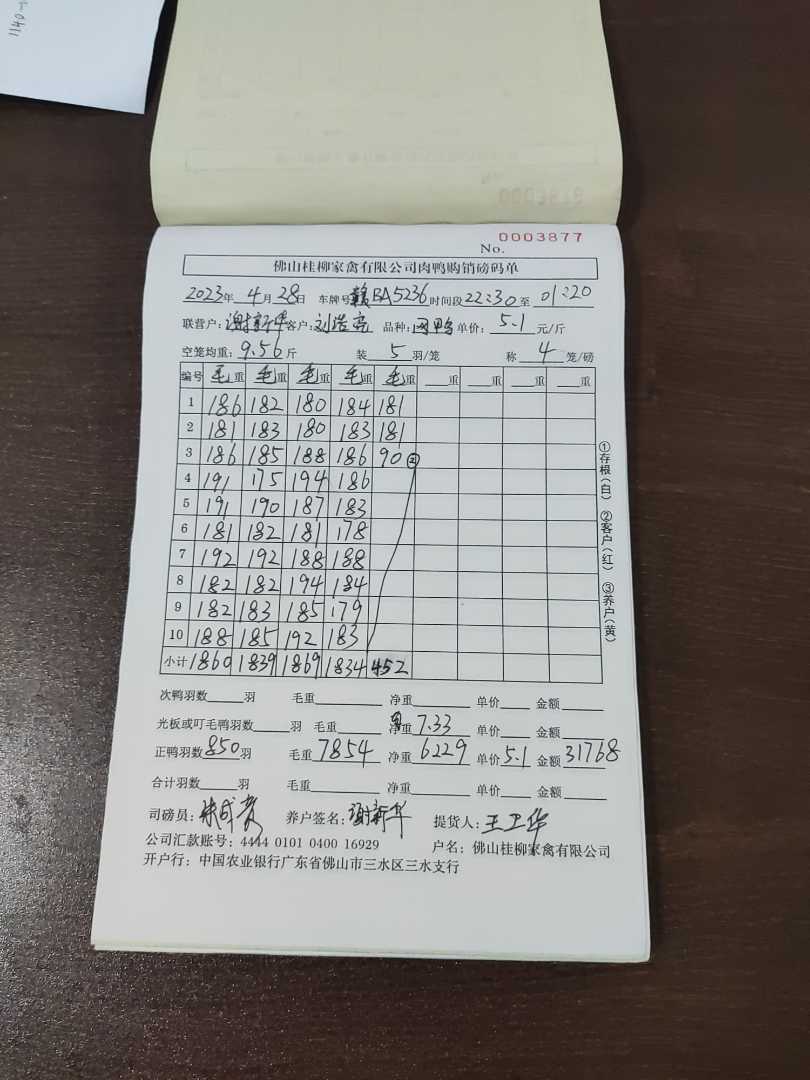 1140
0003877
No.
佛山桂柳家禽有限公司肉鸭购销磅码单
2023年 4月 28日 车牌号 赣BA5236 时间段 22:30 至 01:20
联营户: 谢新华 客户: 刘浩亮 品种: 肉鸭 单价: 5.1 元/斤
空笼均重: 9.56 斤 装 5 羽/笼 称 4 笼/磅
编号 毛重 毛重 毛重 毛重 毛重 重 重 重 重
1 186 182 180 184 181
2 181 183 180 183 181
3 186 185 188 186 90 ②
4 191 175 194 186
5 191 190 187 183
6 181 182 181 178
7 192 192 188 188
8 182 182 194 184
9 182 183 185 179
10 188 185 192 183
小计 1860 1839 1869 1834 452
①存根(白) ②客户(红) ③养户(黄)
次鸭羽数 羽 毛重 净重 单价 金额
光板或叮毛鸭羽数 羽 毛重 净重 7.33 单价 金额
正鸭羽数 850 羽 毛重 7854 净重 6229 单价 5.1 金额 31768
合计羽数 羽 毛重 净重 单价 金额
司磅员: 养户签名: 谢新华 提货人: 王卫华
公司汇款账号: 4444 0101 0400 16929 户名: 佛山桂柳家禽有限公司
开户行: 中国农业银行广东省佛山市三水区三水支行